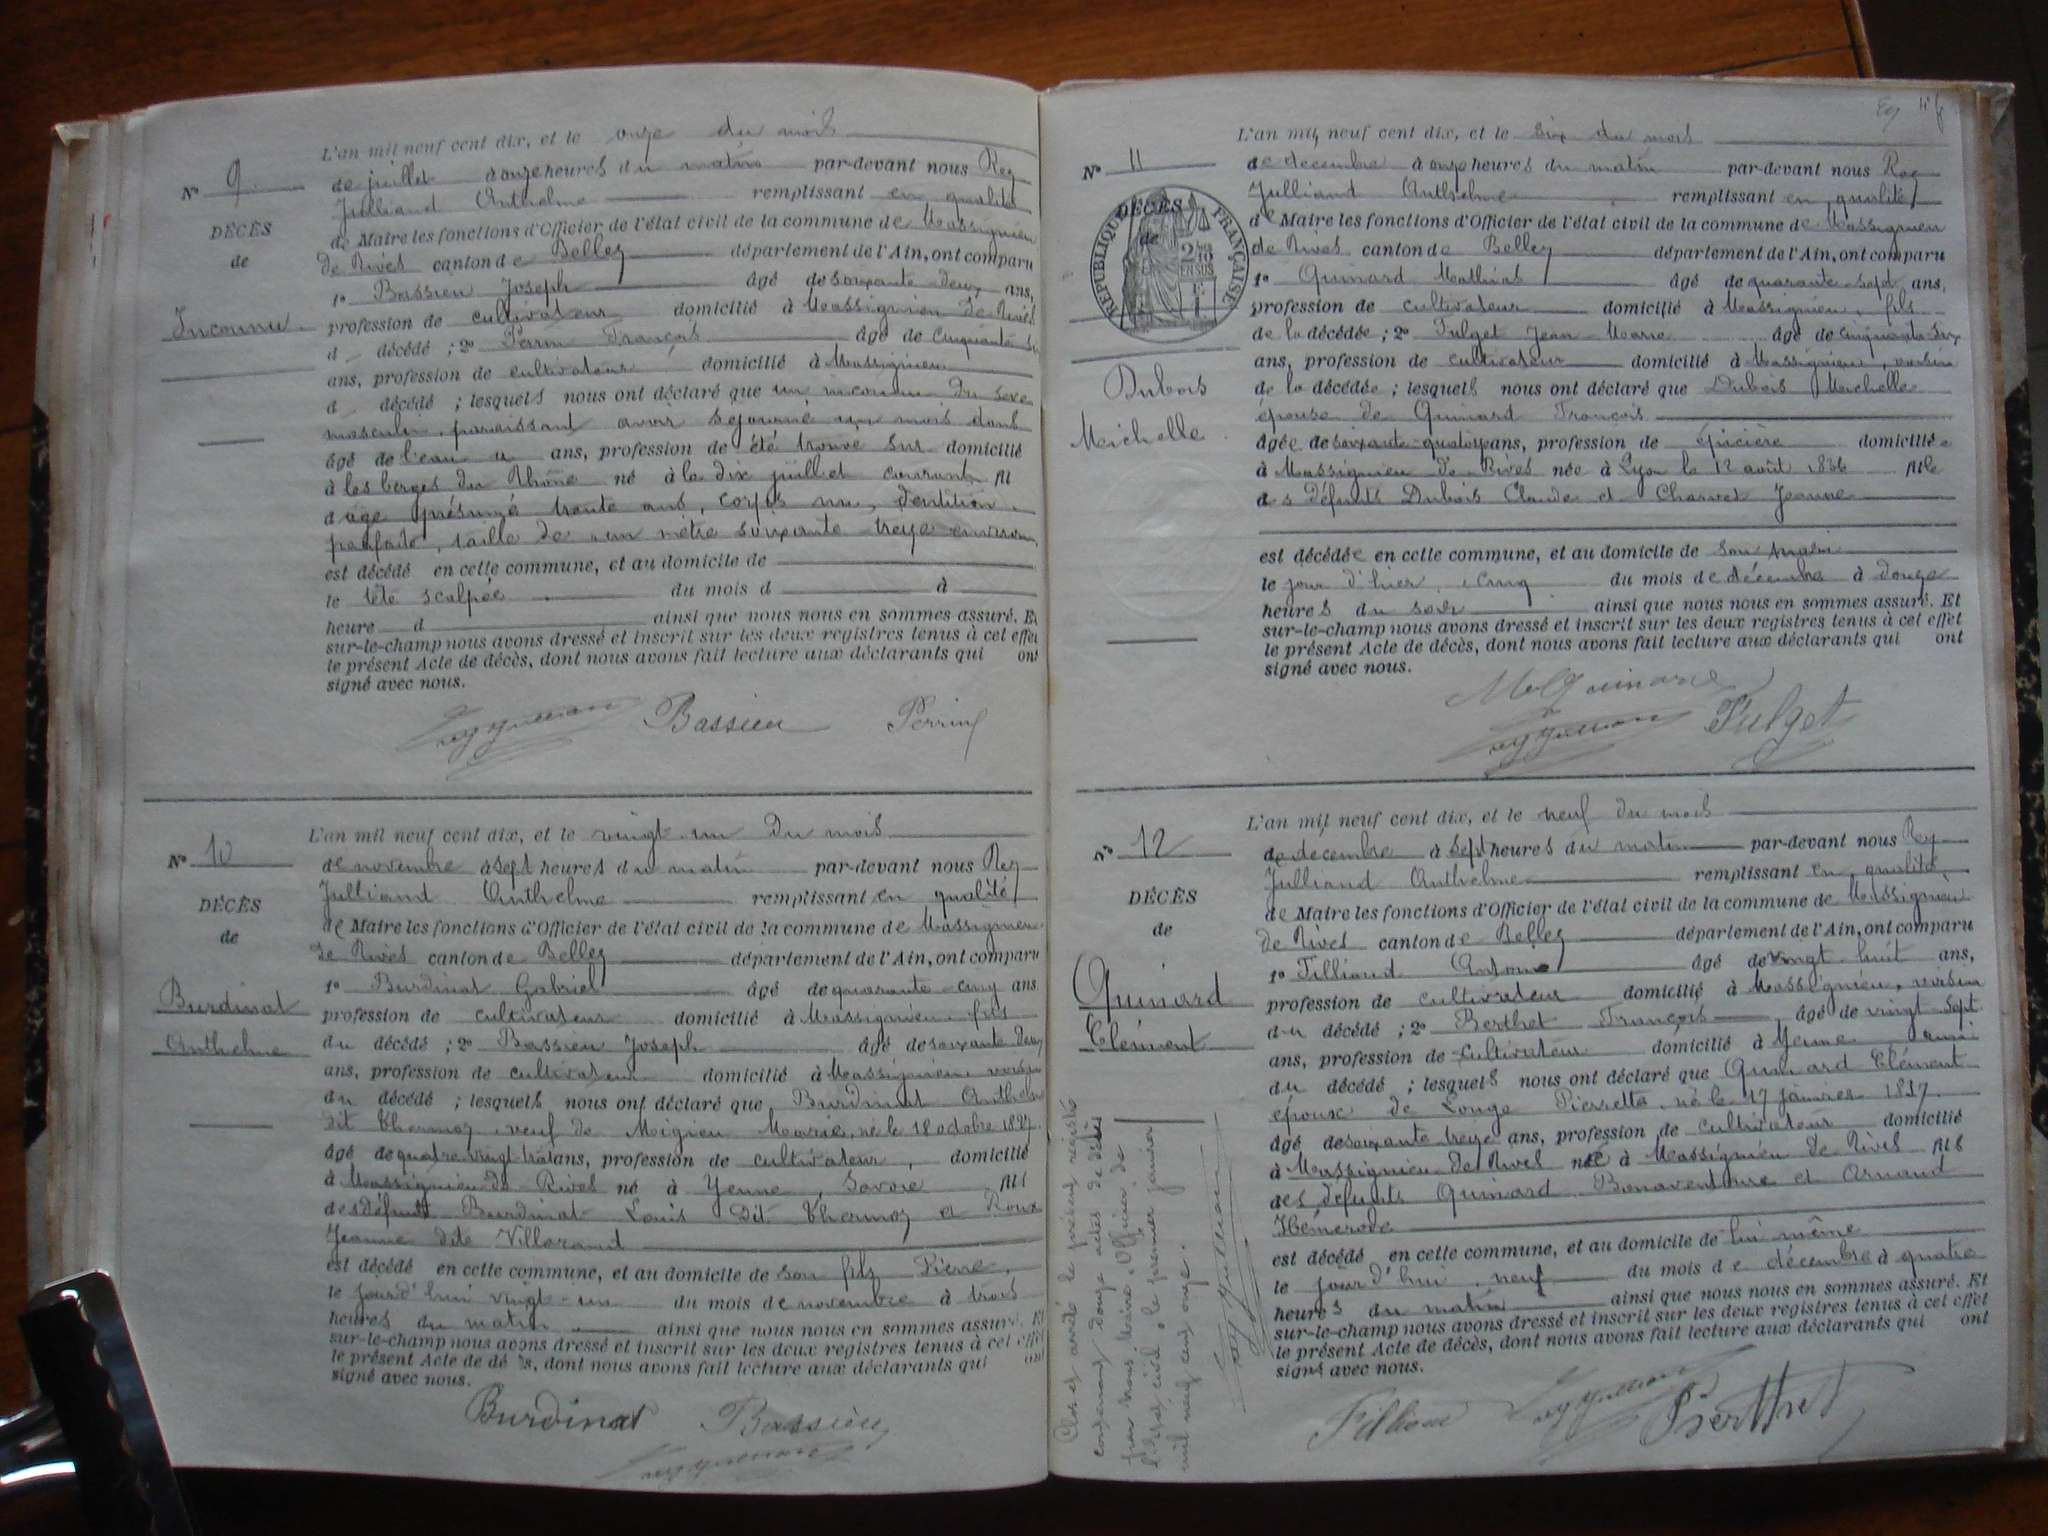 L'an mil neuf cent dix, et le onze du mois
de juillet à onze heures du matin par-devant nous Rey
Julliand Anthelme remplissant en qualité
de Maire les fonctions d'Officier de l'état civil de la commune de Massignieu
de Rives canton de Belley département de l'Ain, ont comparu
1º Bassieu Joseph âgé de soixante-deux ans,
profession de cultivateur domicilié à Massignieu de Rives
d décédé ; 2º Perrin François âgé de cinquante
ans, profession de cultivateur domicilié à Massignieu
d décédé ; lesquels nous ont déclaré que un inconnu du sexe
masculin, paraissant avoir séjourné un mois dans
âgé de l'eau a ans, profession de été trouvé sur domicilié
à les berges du Rhône né à le dix juillet courant fil
d'âge présumé trente ans, corps nu, dentition
parfaite, taille de un mètre soixante-treize environ,
est décédé en cette commune, et au domicile de
le tête scalpée du mois d à
heure d ainsi que nous nous en sommes assuré. Et
sur-le-champ nous avons dressé et inscrit sur les deux registres tenus à cet effet
le présent Acte de décès, dont nous avons fait lecture aux déclarants qui ont
signé avec nous.
Nº 9
DÉCÈS
de
Inconnu
Bassieu Perrin
L'an mil neuf cent dix, et le vingt-un du mois
de novembre à sept heures du matin par-devant nous Rey
Julliand Anthelme remplissant en qualité
de Maire les fonctions d'Officier de l'état civil de la commune de Massignieu
de Rives canton de Belley département de l'Ain, ont comparu
1º Burdinat Gabriel âgé de quarante-cinq ans
profession de cultivateur domicilié à Massignieu fils
du décédé ; 2º Bassieu Joseph âgé de soixante deux
ans, profession de cultivateur domicilié à Massignieu voisin
du décédé ; lesquels nous ont déclaré que Burdinat Anthelme
dit Thermoz, veuf de Migieu Marie, né le 18 octobre 1827
âgé de quatre vingt trois ans, profession de cultivateur, domicilié
à Massignieu de Rives né à Yenne, Savoie fils
des défunts Burdinat Louis dit Thermoz et Roux
Jeanne dite Villerand
est décédé en cette commune, et au domicile de son fils Pierre,
le jourd'hui vingt-un du mois de novembre à trois
heures du matin ainsi que nous nous en sommes assuré. Et
sur-le-champ nous avons dressé et inscrit sur les deux registres tenus à cet effet
le présent Acte de décès, dont nous avons fait lecture aux déclarants qui ont
signé avec nous.
Nº 10
DÉCÈS
de
Burdinat
Anthelme
Burdinat Bassieu
L'an mil neuf cent dix, et le six du mois
de décembre à onze heures du matin par-devant nous Rey
Julliand Anthelme remplissant en qualité
de Maire les fonctions d'Officier de l'état civil de la commune de Massignieu
de Rives canton de Belley département de l'Ain, ont comparu
1º Guinard Mathias âgé de quarante-sept ans,
profession de cultivateur domicilié à Massignieu, fils
de la décédée ; 2º Pulget Jean-Marie âgé de cinquante-six
ans, profession de cultivateur domicilié à Massignieu, voisin
de la décédée ; lesquels nous ont déclaré que Dubois Michelle
épouse de Guinard François
âgée de soixante-quatorze ans, profession de épicière domiciliée
à Massignieu de Rives née à Lyon le 12 août 1836 fille
des défunts Dubois Claude et Charvet Jeanne
est décédée en cette commune, et au domicile de son mari
le jour d'hier cinq du mois de décembre à douze
heures du soir ainsi que nous nous en sommes assuré. Et
sur-le-champ nous avons dressé et inscrit sur les deux registres tenus à cet effet
le présent Acte de décès, dont nous avons fait lecture aux déclarants qui ont
signé avec nous.
Nº 11
DÉCÈS
de
RÉPUBLIQUE FRANÇAISE
Dubois
Michelle
Guinard
Pulget
L'an mil neuf cent dix, et le neuf du mois
de décembre à sept heures du matin par-devant nous Rey
Julliand Anthelme remplissant en qualité
de Maire les fonctions d'Officier de l'état civil de la commune de Massignieu
de Rives canton de Belley département de l'Ain, ont comparu
1º Filliand Antoine âgé de vingt-huit ans,
profession de cultivateur domicilié à Massignieu, voisin
du décédé ; 2º Berthet François âgé de vingt-sept
ans, profession de cultivateur domicilié à Yenne ami
du décédé ; lesquels nous ont déclaré que Guinard Clément
époux de Longe Pierrette né le 17 janvier 1837
âgé de soixante treize ans, profession de cultivateur domicilié
à Massignieu de Rives né à Massignieu de Rives fils
des défunts Guinard Bonaventure et Arnaud
est décédé en cette commune, et au domicile de lui même
le jourd'hui neuf du mois de décembre à quatre
heures du matin ainsi que nous nous en sommes assuré. Et
sur-le-champ nous avons dressé et inscrit sur les deux registres tenus à cet effet
le présent Acte de décès, dont nous avons fait lecture aux déclarants qui ont
signé avec nous.
Nº 12
DÉCÈS
de
Guinard
Clément
Filliand Berthet
Clos et arrêté le présent registre
contenant douze actes de décès
par nous, Maire, Officier de
l'état civil, le premier janvier
mil neuf cent onze.